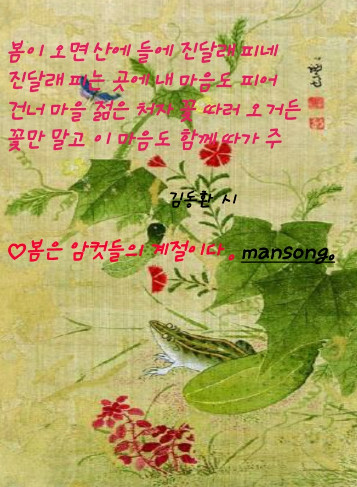 봄이 오면 산에 들에 진달래 피네
진달래 피는 곳에 내 마음도 피어
건너 마을 젊은 처자 꽃 따러 오거든
꽃만 말고 이 마음도 함께 따가 주
김동환 시
♡봄은 암컷들의 계절이다. mansong.